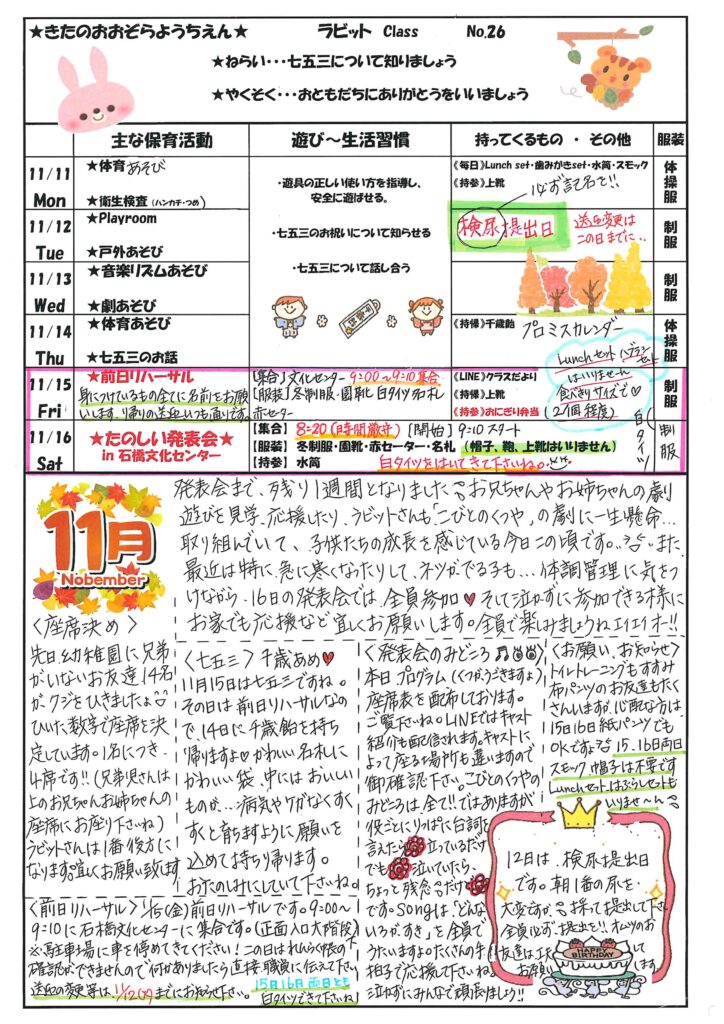 ★きたのおおぞらようちえん★ ラビット Class No.26
★ねらい・・・七五三について知りましょう
★やくそく・・・おともだちにありがとうをいいましょう
主な保育活動 遊び～生活習慣 持ってくるもの ・ その他 服装
11/11 Mon
★体育あそび
★衛生検査（ハンカチ・つめ）
11/12 Tue
★Playroom
★戸外あそび
11/13 Wed
★音楽リズムあそび
★劇あそび
11/14 Thu
★体育あそび
★七五三のお話
・遊具の正しい使い方を指導し、
安全に遊ばせる。
・七五三のお祝いについて知らせる
・七五三について話し合う
《毎日》Lunch set・歯みがきset・水筒・スモック
《持参》上靴
必ず記名を!!
検尿提出日
送迎変更は
この日までに‥
《持帰》千歳飴 プロミスカレンダー
体操服
制服
制服
体操服
11/15 Fri
★前日リハーサル
身につけているもの全てに名前をお願
いします。帰りの送迎いつも通りです。
【集合】文化センター 9:00～9:10集合
【服装】冬制服・園靴 白タイツ・名札
赤セーター
《LINE》クラスだより
《持帰》上靴
《持参》おにぎり弁当
Lunchセット ハブラシセット
はいりません
食べきりサイズで♡
(2個程度)
制服
11/16 Sat
★たのしい発表会★
in 石橋文化センター
【集合】 8:20（時間厳守） 【開始】 9:10スタート
【服装】 冬制服・園靴・赤セーター・名札 （帽子、鞄、上靴はいりません）
【持参】 水筒 白タイツをはいてきて下さいね。
制服
白タイツ
11月
Nobember
発表会まで、残り1週間となりました。お兄ちゃんやお姉ちゃんの劇
遊びを見学、応援したり、ラビットさんも「こびとのくつや」の劇に一生懸命…
取り組んでいて、子供たちの成長を感じている今日この頃です。また
最近は特に急に寒くなったりして、ネツがでる子も… 体調管理に気をつ
けながら、16日の発表会では、全員参加♥そして泣かずに参加できる様に
お家でも応援など宜しくお願いします。全員で楽しみましょうねエイエイオー!!
〈座席決め〉
先日幼稚園に兄弟
がいないお友達14名
がクジをひきましたよ
ひいた数字で座席を決
定しています。1名につき
4席です!!(兄弟児さんは
上のお兄ちゃんお姉ちゃんの
座席にお座り下さいね)
ラビットさんは1番後方に
なります。宜くお願い致します
〈七五三〉千歳あめ♥
11月15日は七五三ですね。
その日は前日リハーサルなの
で、14日に千歳飴を持ち
帰りますよ♡かわいい名札に
かわいい袋、中にはおいしい
ものが…病気やケガなくすく
すくと育ちますように願いを
込めて持ち帰ります。
おたのしみにしていて下さいね。
〈発表会のみどころ♫〉
本日プログラム(くつがうごきますよ)
座席表を配布しております。
ご覧下さいね。LINEではキャスト
紹介も配信されます。キャストに
よって座る場所も違いますので
御確認下さい。こびとのくつやの
みどころは全て!!ではありますが
役ごとにりっぱに台詞を
言えたら 立っているだけ
でも 泣いていたら、
ちょっと残念 だけど
です。Songは、「どんな
いろがすき」を全員で
うたいますよ。たくさんの手
拍子で応援して下さいね。
泣かずにみんなで頑張りましょう!!
〈お願い、お知らせ〉
トイレトレーニングもすすみ
布パンツのお友達もたく
さんいますが、心配な方は
15日16日紙パンツでも
OKです。15.16両日
スモック、帽子は不要です
Lunchセット、はぶらしセットも
いりませ～ん
〈前日リハーサル〉11/15(金)前日リハーサルです。9:00～
9:10に石橋文化センターに集合です。(正面入口大階段)
※駐車場に車を停めてきてください！この日はれんらく帳の
確認ができませんので何かありましたら直接職員に伝えて下さい
送迎の変更等は11/12(火)までにお知らせ下さい。15日16日両日とも
白タイツできて下さいね
12日は、検尿提出日
です。朝1番の尿を
大変ですが、採って提出して下さい
全員必ず、提出を!!オムツのお
友達は
お願い します。
HAPPY BIRTHDAY